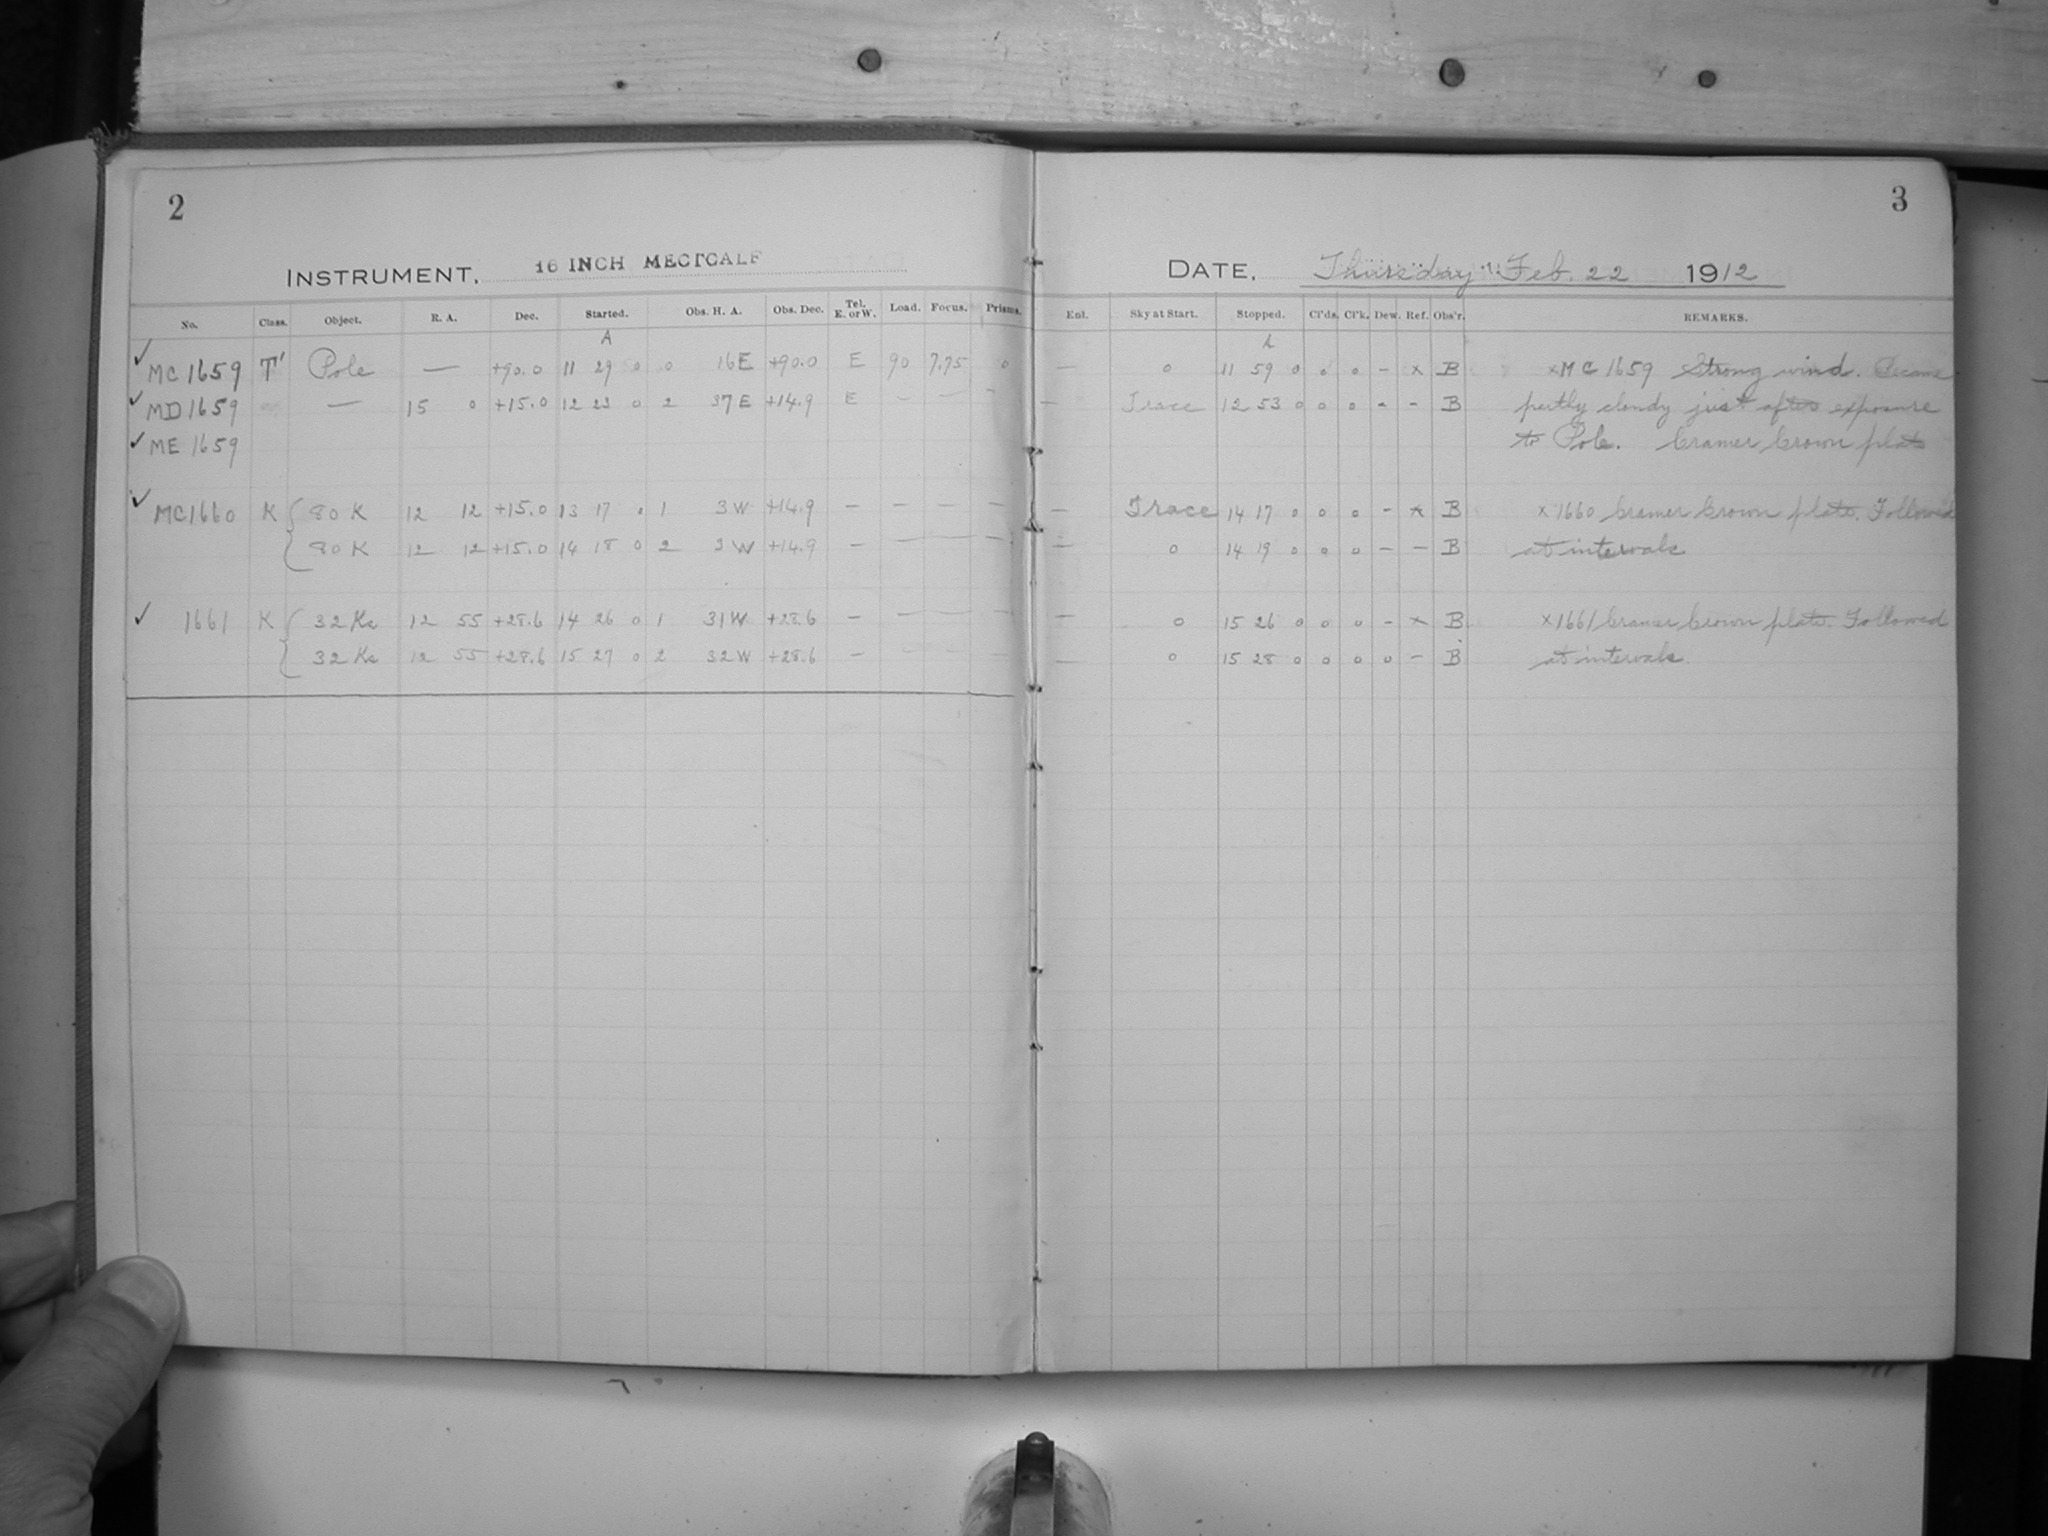 2
INSTRUMENT, 16 INCH MECTCALF
No. Class. Object. R. A. Dec. Started. Obs. H. A. Obs. Dec. Tel. E. or W. Load. Focus. Prisms.
A
✓ MC 1659 T' Pole — +90.0 11 29 0 0 16 E +90.0 E 90 7.75 0
✓ MD 1659 — 15 0 +15.0 12 23 0 2 37 E +14.9 E — — —
✓ ME 1659
✓ MC 1660 K 80 K 12 12 +15.0 13 17 0 1 3 W +14.9 — — — —
80 K 12 12 +15.0 14 18 0 2 3 W +14.9 — — — —
✓ 1661 K 32 Kc 12 55 +28.6 14 26 0 1 31 W +28.6 — — — —
32 Kc 12 55 +28.6 15 27 0 2 32 W +28.6 — — — —
3
DATE, Thursday Feb. 22 1912
Enl. Sky at Start. Stopped. Cl'ds. Cl'k. Dew. Ref. Obs'r. REMARKS.
— 0 11 59 0 0 0 – x B xMC 1659 Strong wind. Became
— Trace 12 53 0 0 0 - - B partly cloudy just after exposure
to Pole. Cramer Crown plate
— Trace 14 17 0 0 0 – x B x 1660 Cramer Crown plate. Followed
— 0 14 19 0 0 0 – – B at intervals
— 0 15 26 0 0 0 – x B x 1661 Cramer Crown plate. Followed
— 0 15 28 0 0 0 0 – B at intervals.